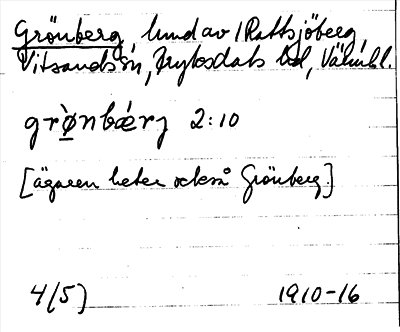 Grönberg, lund av 1 Rattsjöberg,
Vitsands sn, Fryksdals hd, Värml.
grø̀nbǽrj 2:10
[ägaren heter också Grönberg.]
4(5) 1910-16